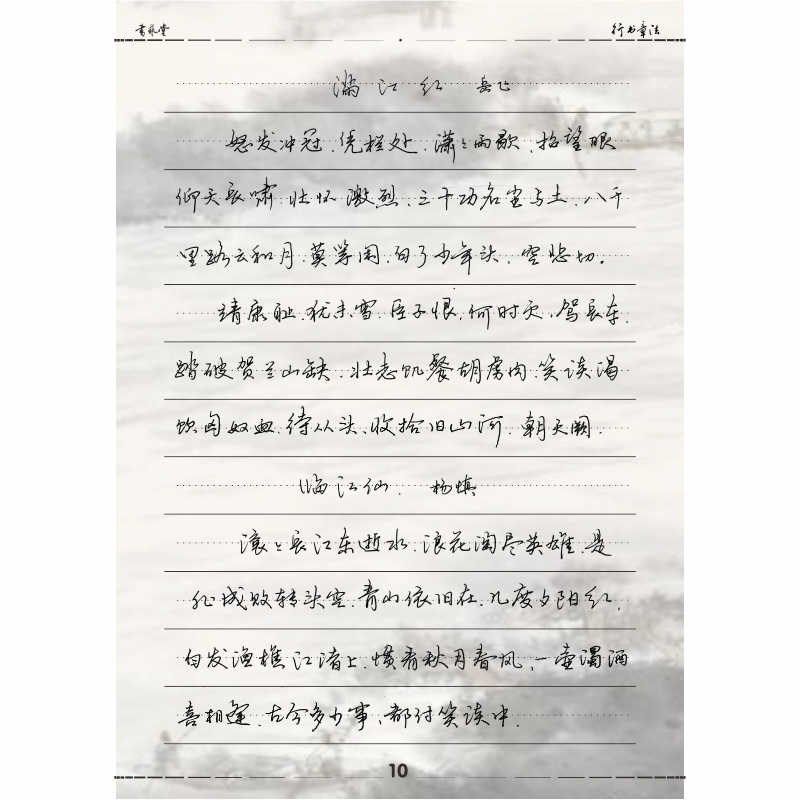 書藝堂
行书章法
满江红 岳飞
怒发冲冠,凭栏处,潇々雨歇,抬望眼
仰天长啸,壮怀激烈,三十功名尘与土,八千
里路云和月,莫等闲,白了少年头,空悲切。
靖康耻,犹未雪,臣子恨,何时灭,驾长车,
踏破贺兰山缺,壮志饥餐胡虏肉,笑谈渴
饮匈奴血,待从头,收拾旧山河,朝天阙。
临江仙. 杨慎
滚々长江东逝水,浪花淘尽英雄,是
非成败转头空,青山依旧在,几度夕阳红,
白发渔樵江渚上,惯看秋月春风,一壶浊酒
喜相逢,古今多少事,都付笑谈中.
10